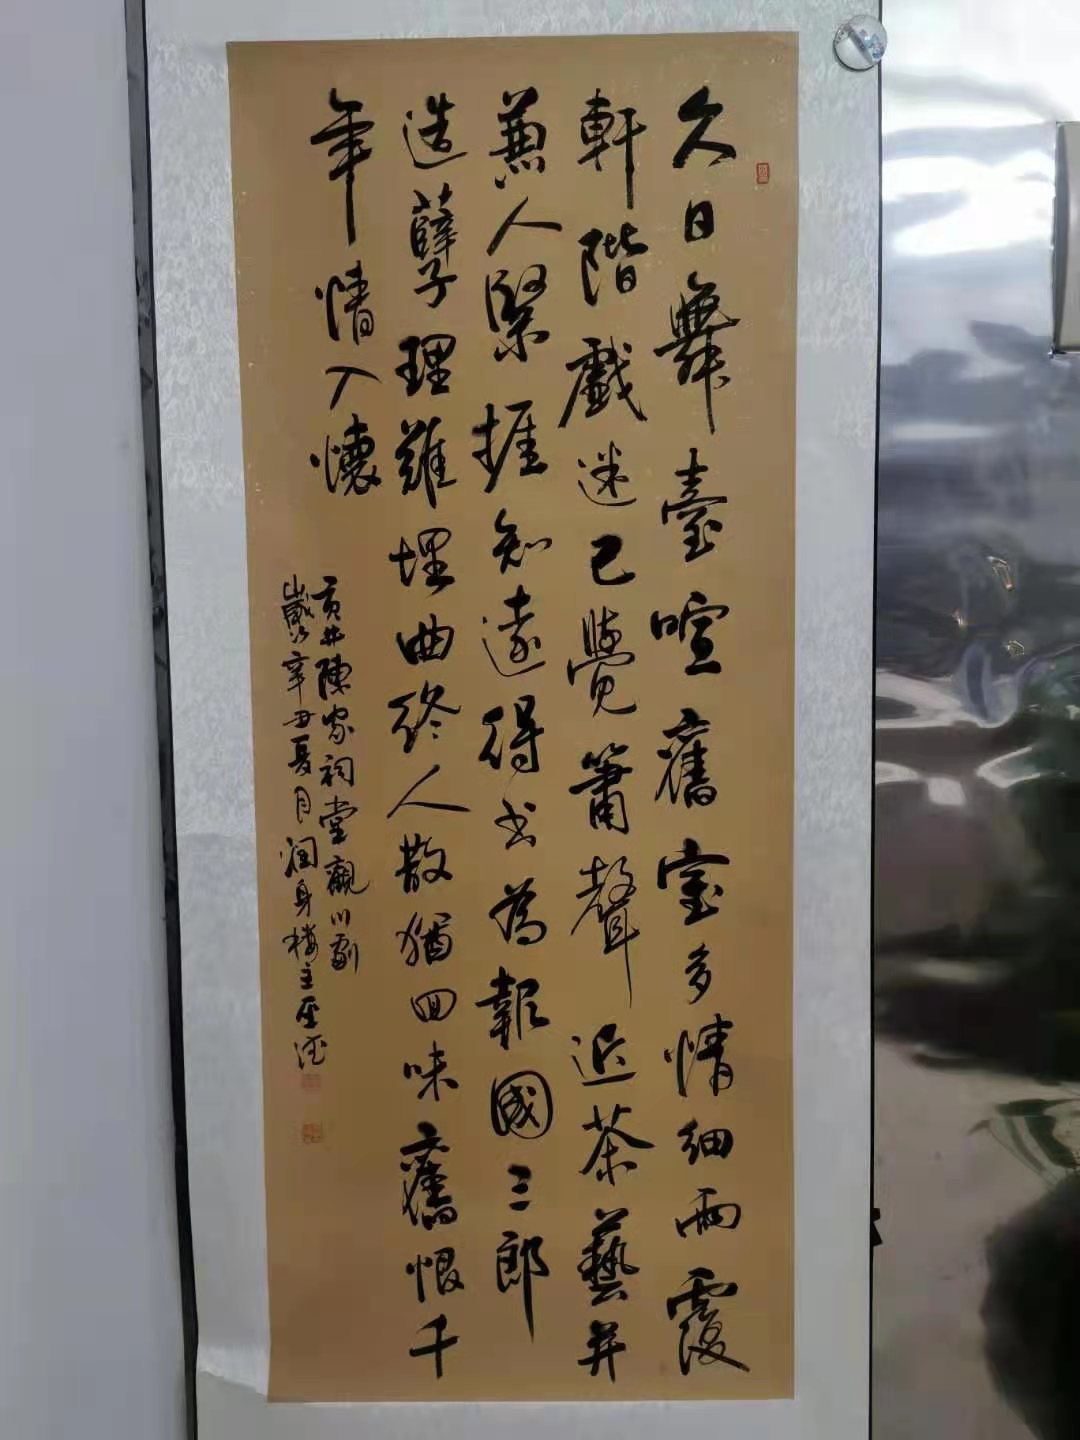 久日舞臺喧舊室多情細雨霞
軒階戲迷已覺簫聲近茶藝并
兼人緊握知遠得書為報國三郎
造孽理難埋曲終人散猶回味舊恨千
年情入懷
貢井陳家祠堂觀川劇
歲次辛丑夏月潤身樓主